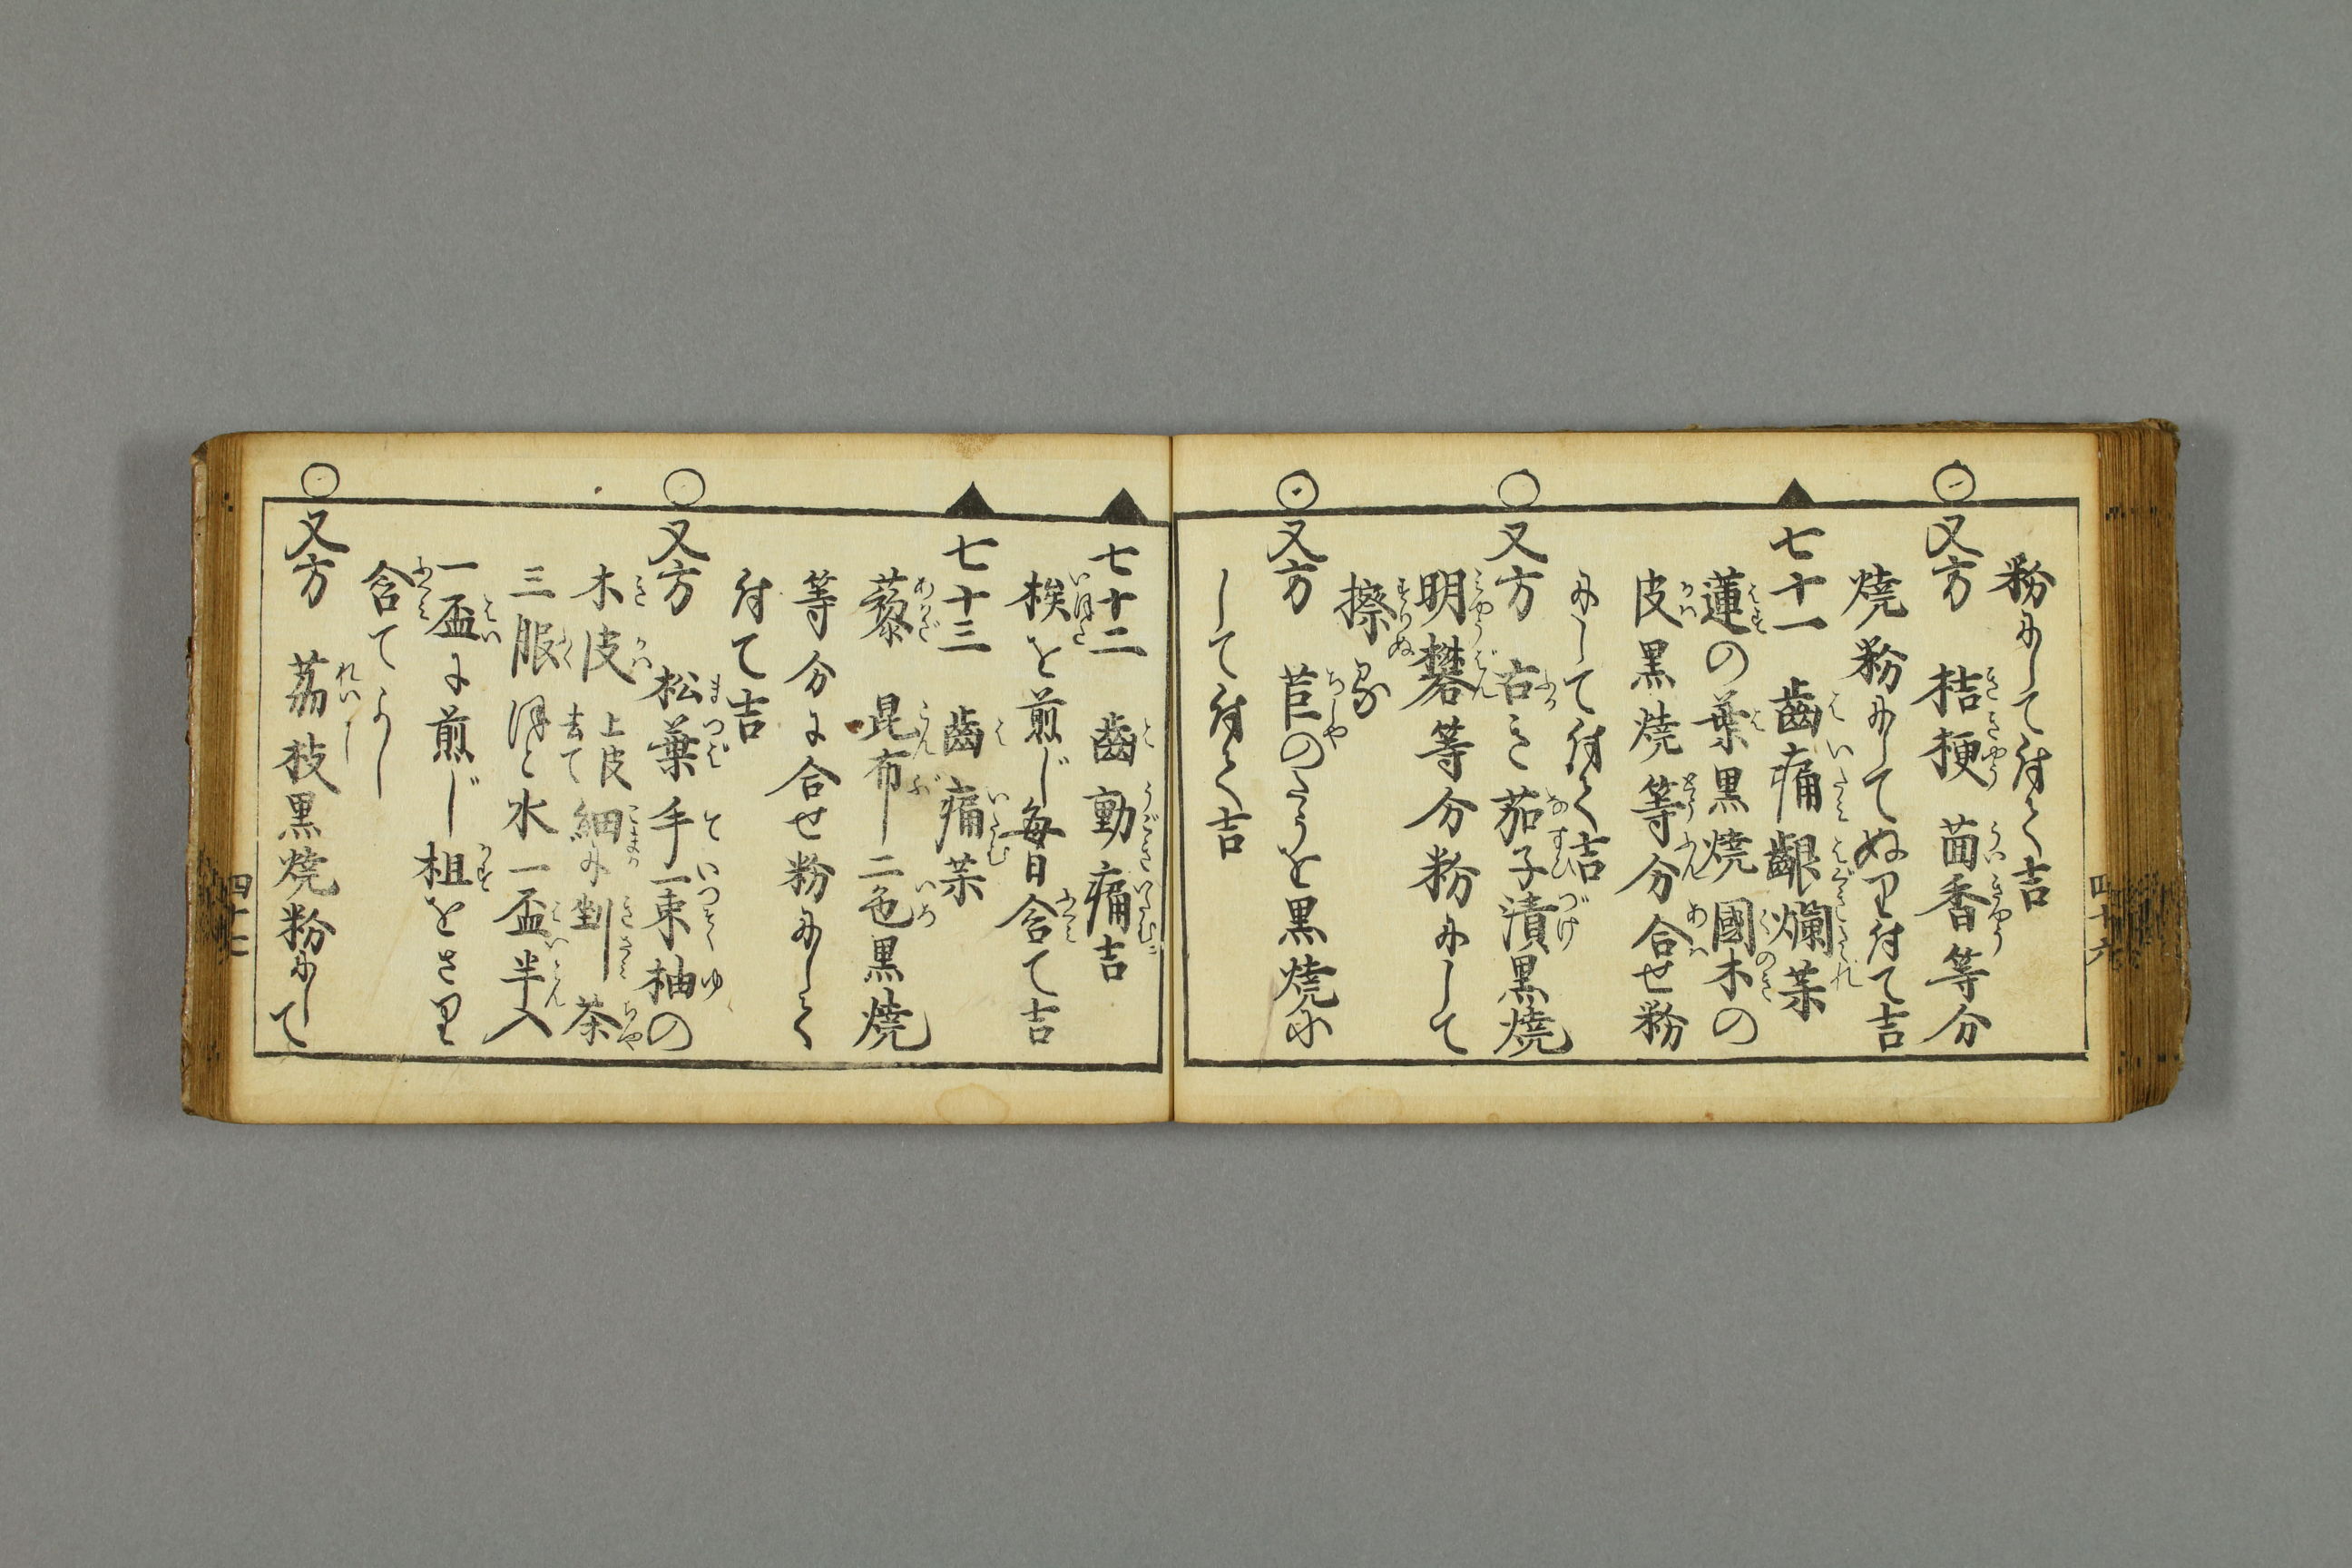 粉にして付て吉
又方　桔梗　茴香等分
焼粉にしてぬり付て吉
七十一　齒痛齦爛薬
蓮の葉黒焼國木の
皮黒焼等分合せ粉
にして付て吉
又方　古き茄子漬黒焼
明礬等分粉にして
擦ぬる
又方　苣のたうを黒焼に
して付て吉
四十六
七十二　齒動痛吉
を煎じ毎日含て吉
七十三　齒痛薬
藜　昆布　二色黒焼
等分に合せ粉にして
付て吉
又方　松葉手一束柚の
木皮上皮去て細に剉　茶
三服ほと水一盃半入
一盃に煎じ柤をさり
含てよし
又方　茘枝黒焼粉にして
四十七